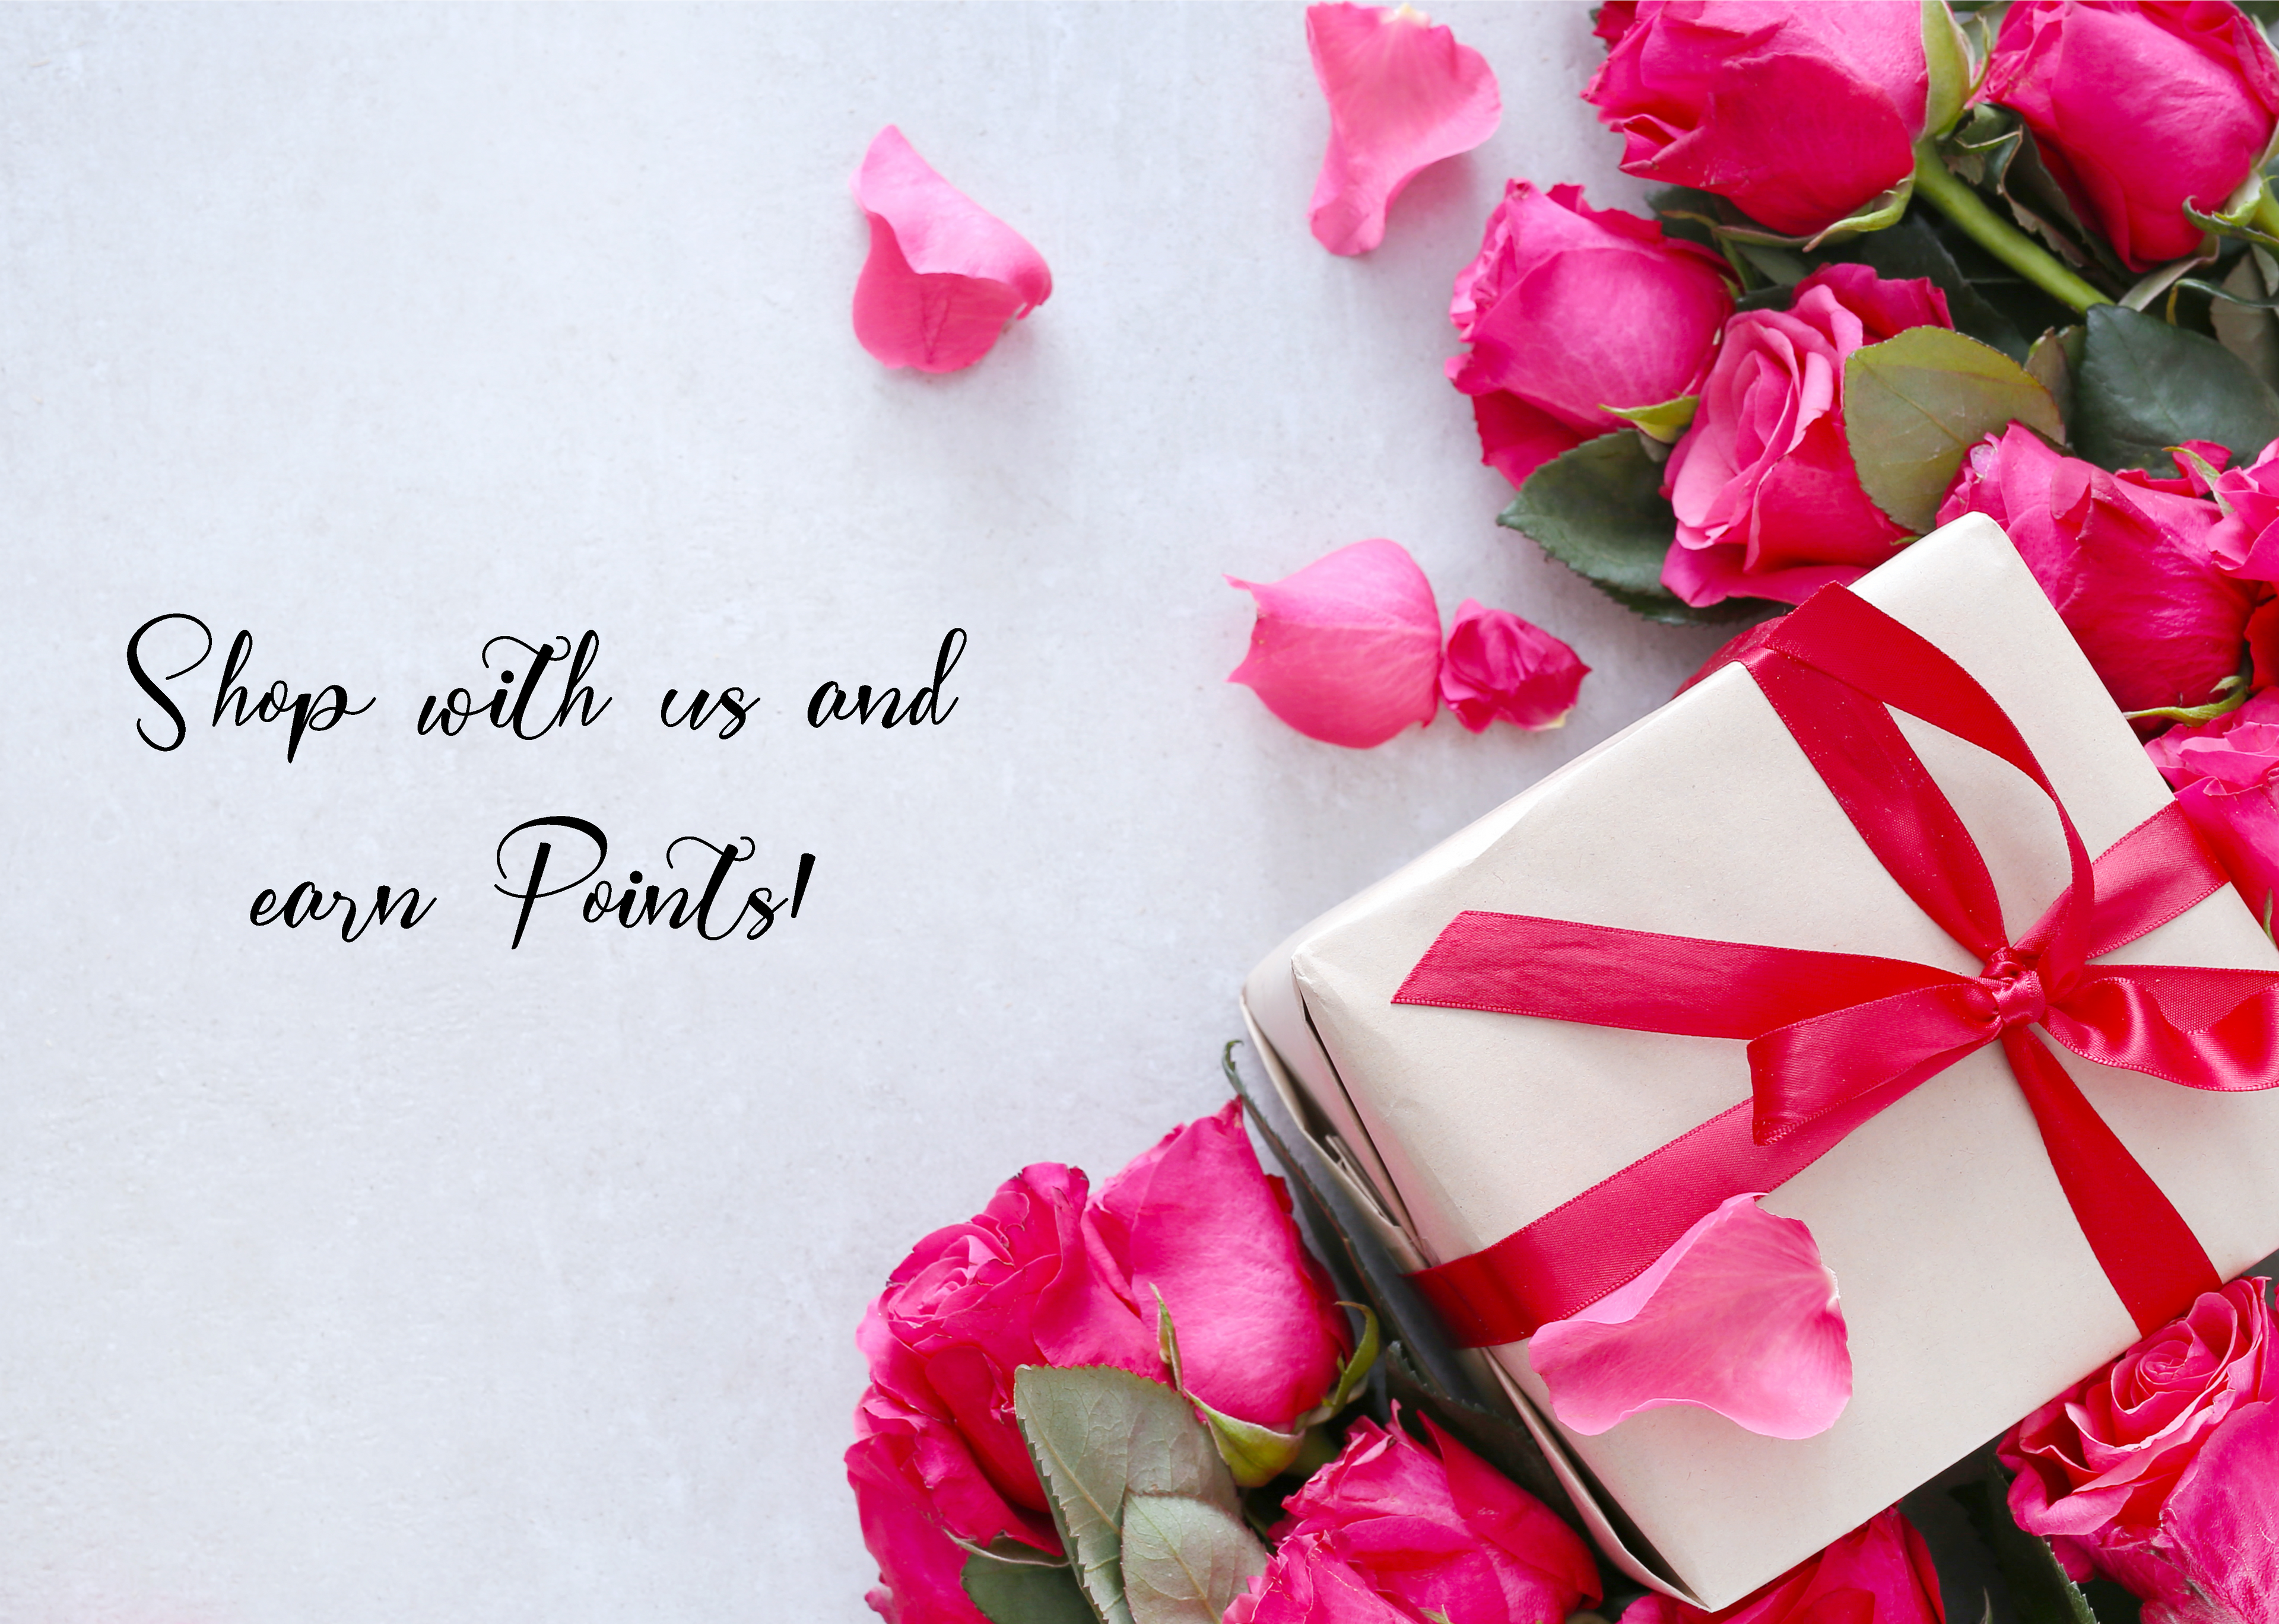 Shop with us and
earn Points!